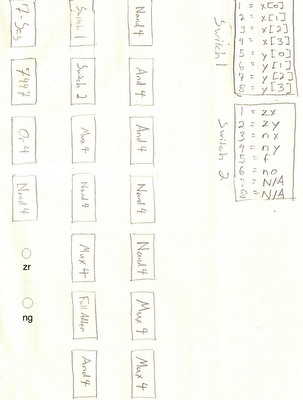 1 = x[0]
2 = x[1]
3 = x[2]
4 = x[3]
5 = y[0]
6 = y[1]
7 = y[2]
8 = y[3]
Switch 1
1 = zx
2 = zy
3 = nx
4 = ny
5 = f
6 = no
7 = N/A
8 = N/A
Switch 2
Nand 4
And 4
And 4
Nand 4
Nand 4
Mux 4
Mux 4
Switch 1
Switch 2
Mux 4
Nand 4
Mux 4
Full Adder
And 4
7-Seg
7447
Or 4
Nand 4
zr
ng